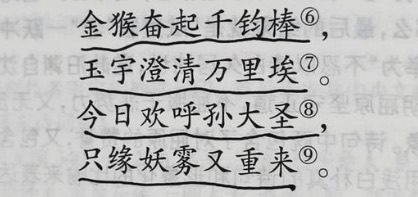 金猴奋起千钧棒⑥，
玉宇澄清万里埃⑦。
今日欢呼孙大圣⑧，
只缘妖雾又重来⑨。